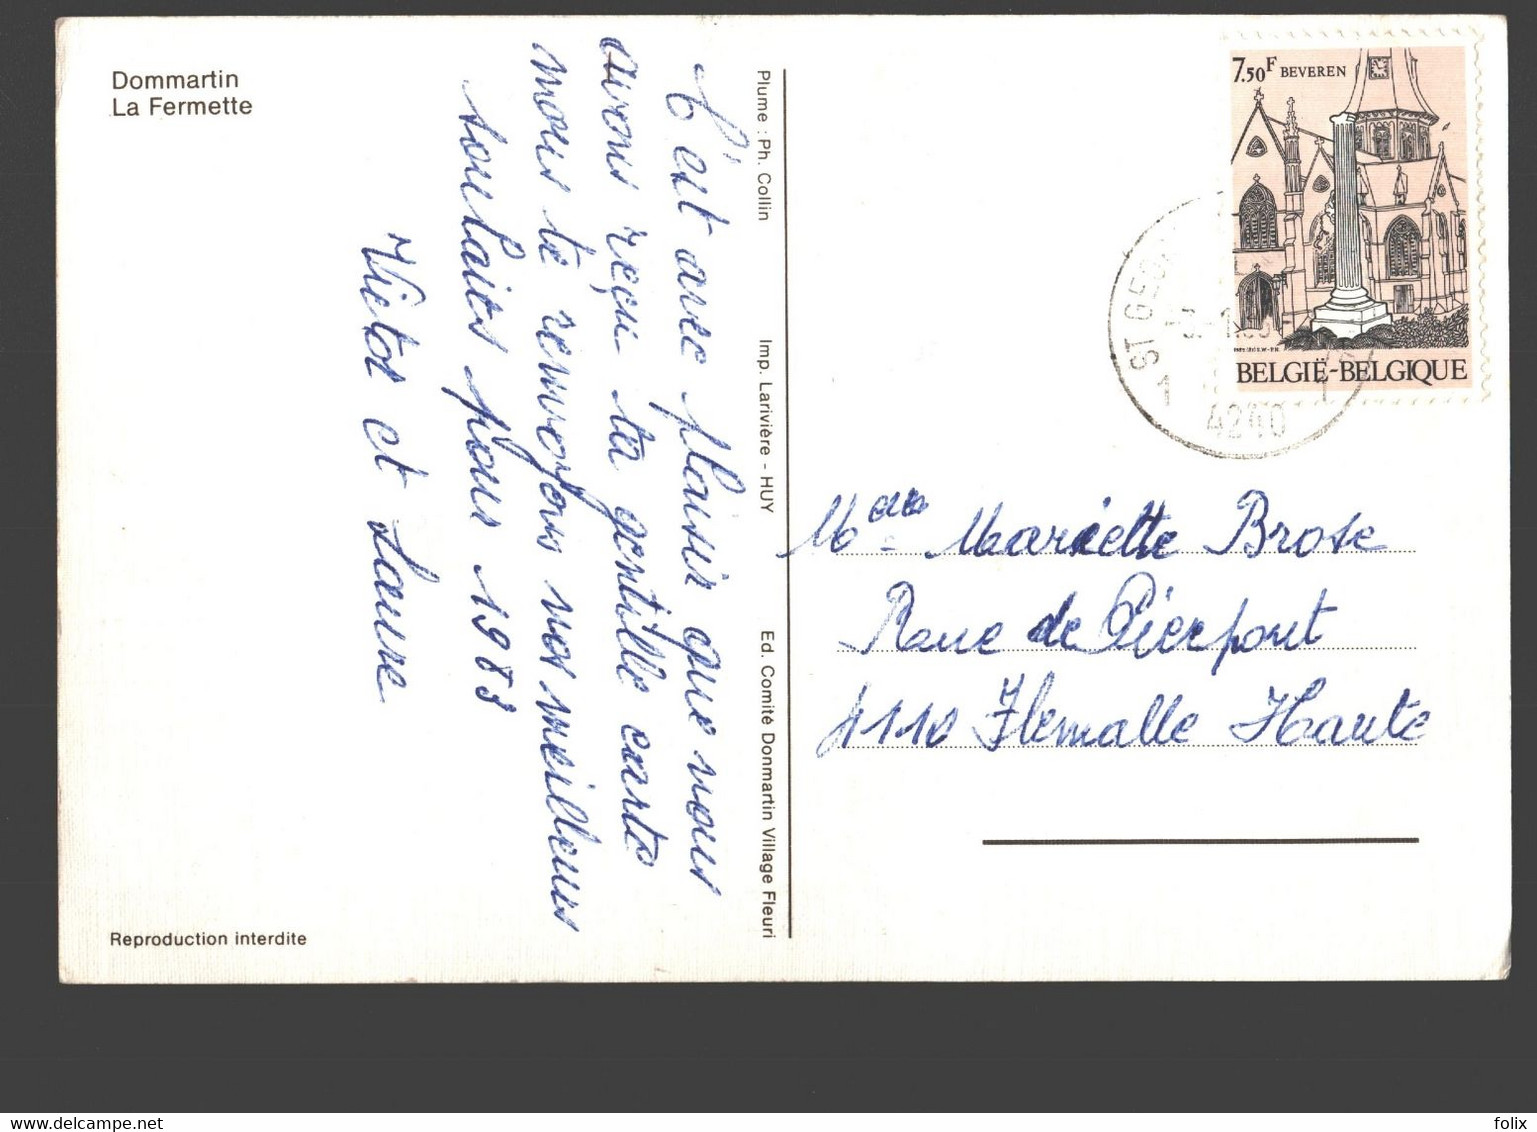 Dommartin
La Fermette
C'est avec plaisir que nous
avons reçu ta gentille carte
nous te renvoyons nos meilleurs
souhaits pour 1983
Victor et Laure
Reproduction interdite
Plume : Ph. Collin
Imp. Larivière - HUY
Ed. Comité Donmartin Village Fleuri
7.50F BEVEREN
BELGIË-BELGIQUE
ST GEO
1 1
4240
Melle Mariette Brose
Rue de Pierpont
4110 Flemalle Haute
delcampe.net
felix